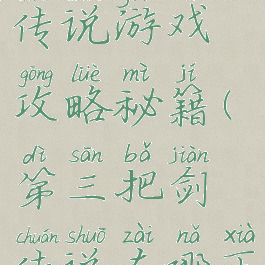 传说游戏
gōng lüè mì jí
攻略秘籍(
dì sān bǎ jiàn
第三把剑
chuán shuō zài nǎ xià
传说在哪下